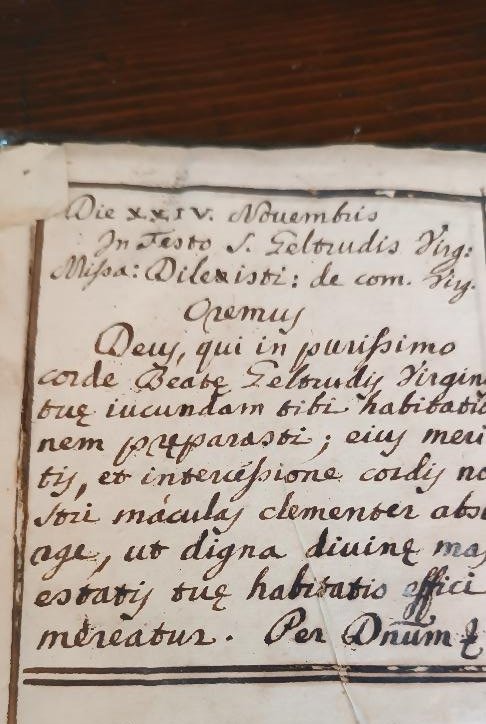 Die XXIV. Novembris
In Festo S. Geltrudis Virg:
Missa: Dilexisti: de com. Vry.
Oremus
Deus, qui in purissimo
corde Beatę Geltrudis Virgin
tuę iucundam tibi habitatio
nem pręparasti; eius meri
tis, et intercessione cordis no
stri máculas clementer abst
rge, ut digna divinę maj
estatis tuę habitatio effici
mereatur. Per Dnum